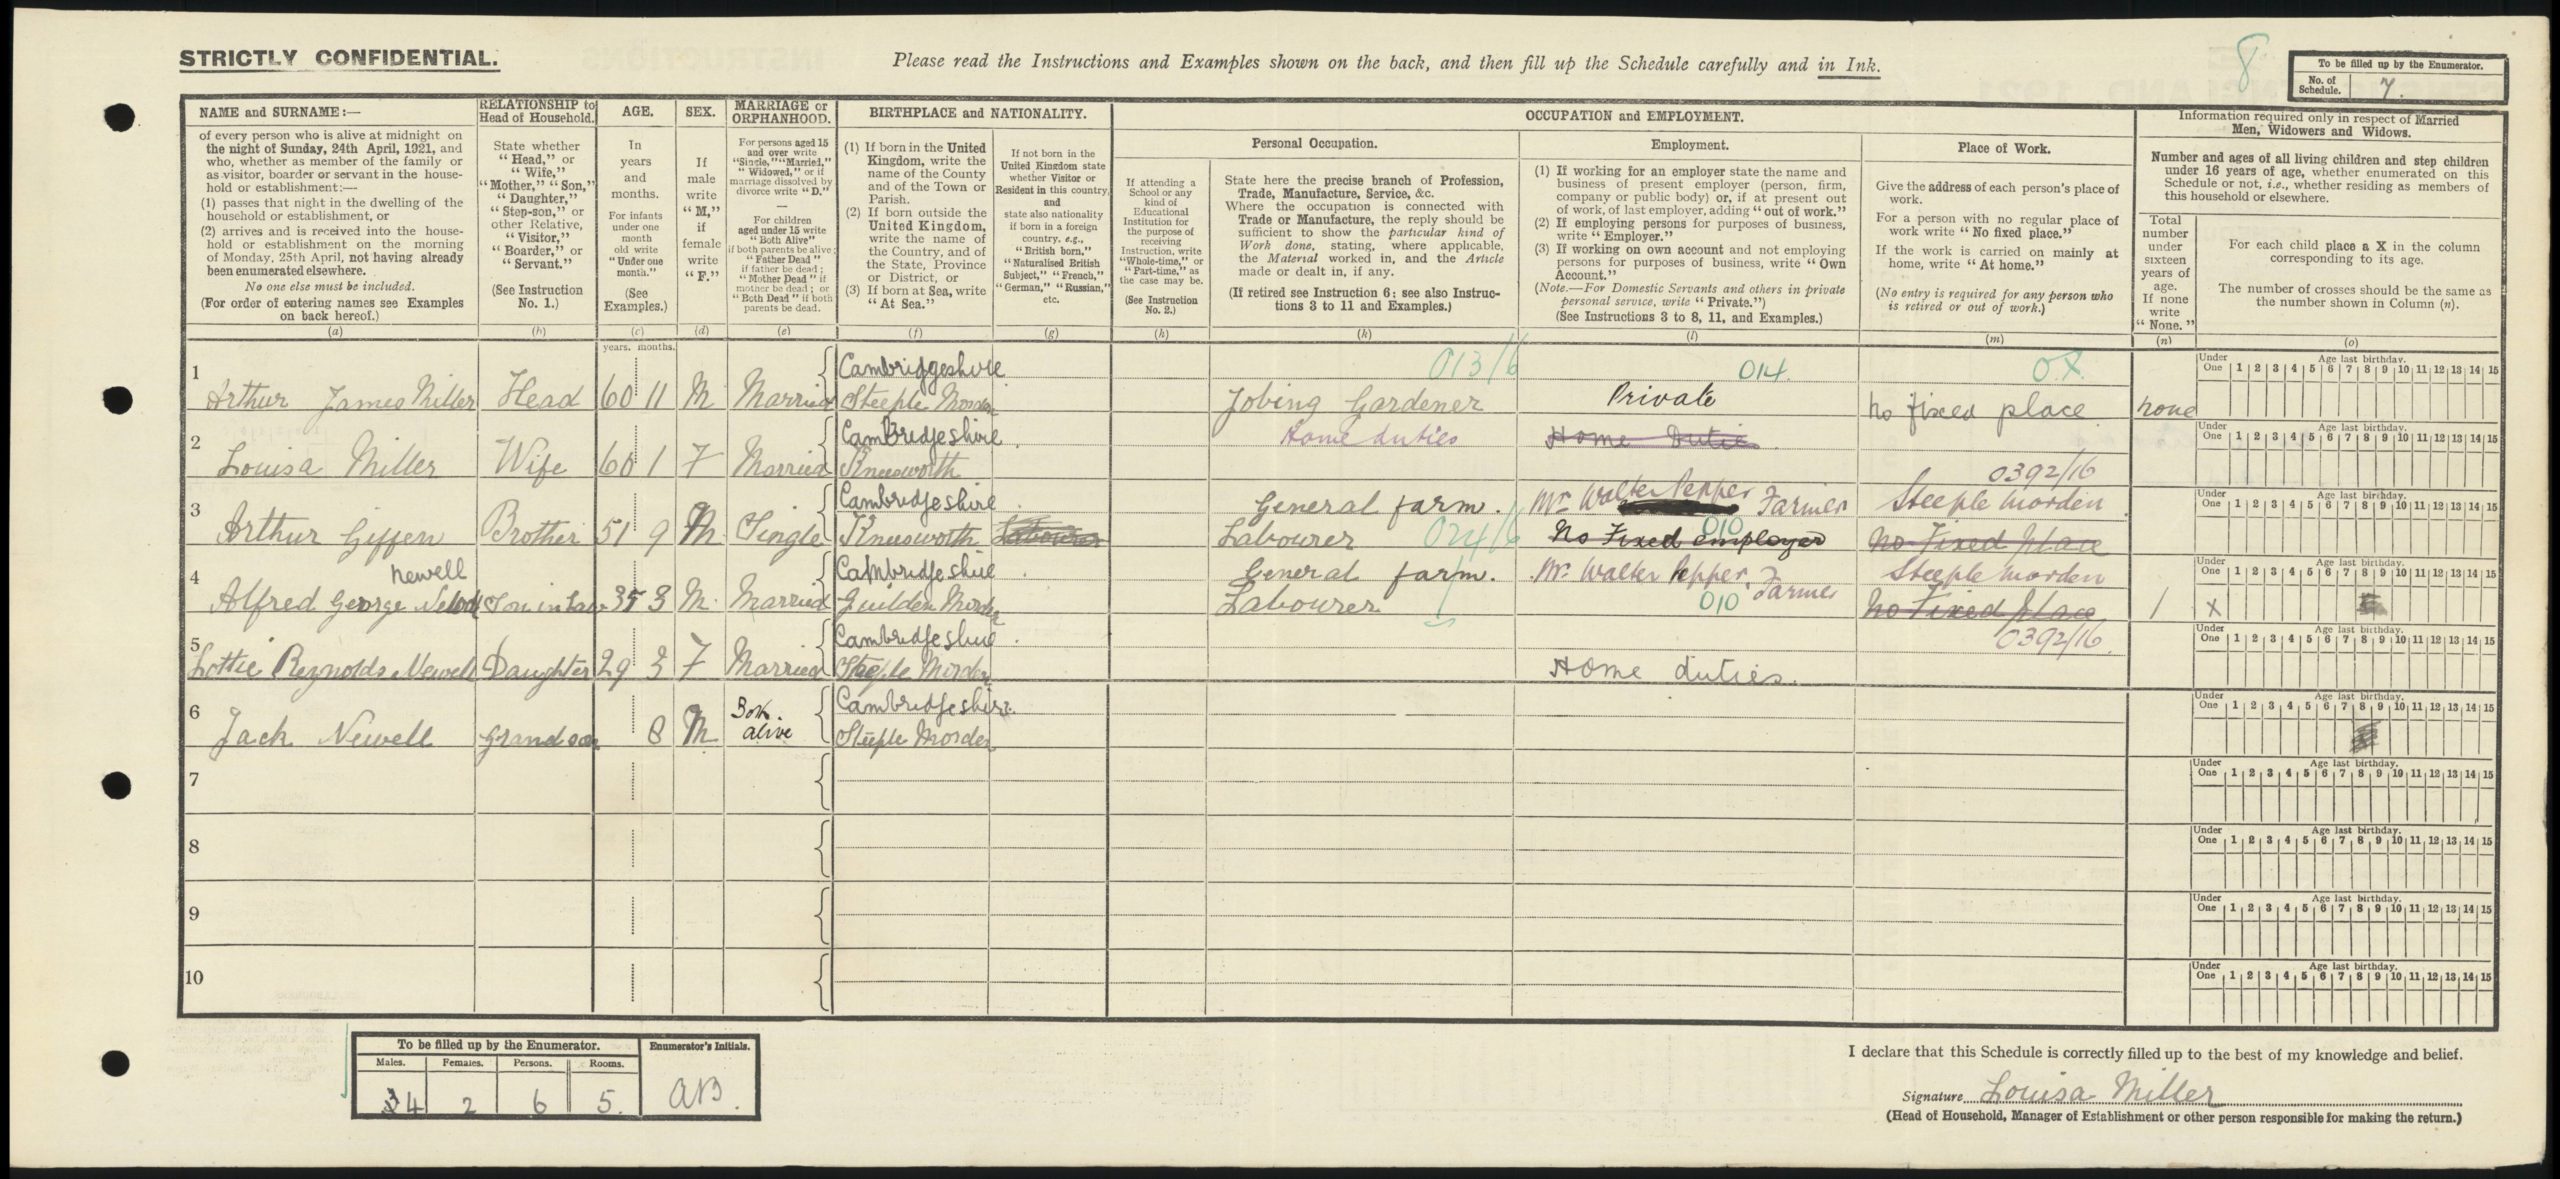 STRICTLY CONFIDENTIAL.
Please read the Instructions and Examples shown on the back, and then fill up the Schedule carefully and in Ink.
8
To be filled up by the Enumerator.
No. of Schedule. 7.
NAME and SURNAME:—
of every person who is alive at midnight on
the night of Sunday, 24th April, 1921, and
who, whether as member of the family or
as visitor, boarder or servant in the house-
hold or establishment:—
(1) passes that night in the dwelling of the
household or establishment, or
(2) arrives and is received into the house-
hold or establishment on the morning
of Monday, 25th April, not having already
been enumerated elsewhere.
No one else must be included.
(For order of entering names see Examples
on back hereof.)
(a)
RELATIONSHIP to
Head of Household.
State whether
"Head," or
"Wife,"
"Mother," "Son,"
"Daughter,"
"Step-son," or
other Relative,
"Visitor,"
"Boarder," or
"Servant."
(See Instruction
No. 1.)
(b)
AGE.
In
years
and
months.
For infants
under one
month
old write
"Under one
month."
(See
Examples.)
(c)
years. months.
SEX.
If
male
write
"M,"
if
female
write
"F."
(d)
MARRIAGE or
ORPHANHOOD.
For persons aged 15
and over write
"Single," "Married,"
"Widowed," or if
marriage dissolved by
divorce write "D."
—
For children
aged under 15 write
"Both Alive"
if both parents be alive;
"Father Dead"
if father be dead;
"Mother Dead" if
mother be dead; or
"Both Dead" if both
parents be dead.
(e)
BIRTHPLACE and NATIONALITY.
(1) If born in the United
Kingdom, write the
name of the County
and of the Town or
Parish.
(2) If born outside the
United Kingdom,
write the name of
the Country, and of
the State, Province
or District, or
(3) If born at Sea, write
"At Sea."
(f)
If not born in the
United Kingdom state
whether Visitor or
Resident in this country,
and
state also nationality
if born in a foreign
country, e.g.,
"British born,"
"Naturalised British
Subject," "French,"
"German," "Russian,"
etc.
(g)
OCCUPATION and EMPLOYMENT.
If attending a
School or any
kind of
Educational
Institution for
the purpose of
receiving
Instruction, write
"Whole-time," or
"Part-time," as
the case may be.
(See Instruction
No. 2.)
(h)
Personal Occupation.
State here the precise branch of Profession,
Trade, Manufacture, Service, &c.
Where the occupation is connected with
Trade or Manufacture, the reply should be
sufficient to show the particular kind of
Work done, stating, where applicable,
the Material worked in, and the Article
made or dealt in, if any.
(If retired see Instruction 6: see also Instruc-
tions 3 to 11 and Examples.)
(k)
Employment.
(1) If working for an employer state the name and
business of present employer (person, firm,
company or public body) or, if at present out
of work, of last employer, adding "out of work."
(2) If employing persons for purposes of business,
write "Employer."
(3) If working on own account and not employing
persons for purposes of business, write "Own
Account."
(Note.—For Domestic Servants and others in private
personal service, write "Private.")
(See Instructions 3 to 8, 11, and Examples.)
(l)
Place of Work.
Give the address of each person's place of
work.
For a person with no regular place of
work write "No fixed place."
If the work is carried on mainly at
home, write "At home."
(No entry is required for any person who
is retired or out of work.)
(m)
Information required only in respect of Married
Men, Widowers and Widows.
Number and ages of all living children and step children
under 16 years of age, whether enumerated on this
Schedule or not, i.e., whether residing as members of
this household or elsewhere.
Total
number
under
sixteen
years of
age.
If none
write
"None."
(n)
For each child place a X in the column
corresponding to its age.
The number of crosses should be the same as
the number shown in Column (n).
(o)
1 Arthur James Miller Head 60 11 M Married Cambridgeshire
Steeple Morden Jobing Gardener 013/6 Private 014. No fixed place none
Under One Age last birthday. 1 2 3 4 5 6 7 8 9 10 11 12 13 14 15
2 Louisa Miller Wife 60 1 F Married Cambridgeshire
Kneesworth Home duties Home Dutie
Under One Age last birthday. 1 2 3 4 5 6 7 8 9 10 11 12 13 14 15
0392/16
3 Arthur Giffen Brother 51 9 M Single Cambridgeshire
Kneesworth Labourer General farm. Labourer 024/6 Mr Walter Pepper Farmer 010 No Fixed employer Steeple Morden No Fixed place
Under One Age last birthday. 1 2 3 4 5 6 7 8 9 10 11 12 13 14 15
Newell
4 Alfred George Son in Law 35 3 M. Married Cambridgeshire
Guilden Morden General farm. Labourer Mr Walter Pepper. Farmer 010 Steeple Morden No Fixed place 1 X
Under One Age last birthday. 1 2 3 4 5 6 7 8 9 10 11 12 13 14 15
0392/16.
5 Lottie Reynolds Newell Daughter 29 3 F Married Cambridgeshire
Steeple Morden Home duties.
Under One Age last birthday. 1 2 3 4 5 6 7 8 9 10 11 12 13 14 15
6 Jack Newell Grandson 8 M Both alive Cambridgeshire
Steeple Morden
Under One Age last birthday. 1 2 3 4 5 6 7 8 9 10 11 12 13 14 15
7
Under One Age last birthday. 1 2 3 4 5 6 7 8 9 10 11 12 13 14 15
8
Under One Age last birthday. 1 2 3 4 5 6 7 8 9 10 11 12 13 14 15
9
Under One Age last birthday. 1 2 3 4 5 6 7 8 9 10 11 12 13 14 15
10
Under One Age last birthday. 1 2 3 4 5 6 7 8 9 10 11 12 13 14 15
To be filled up by the Enumerator. Enumerator's Initials.
Males. Females. Persons. Rooms.
34 2 6 5. AB.
I declare that this Schedule is correctly filled up to the best of my knowledge and belief.
Signature Louisa Miller
(Head of Household, Manager of Establishment or other person responsible for making the return.)